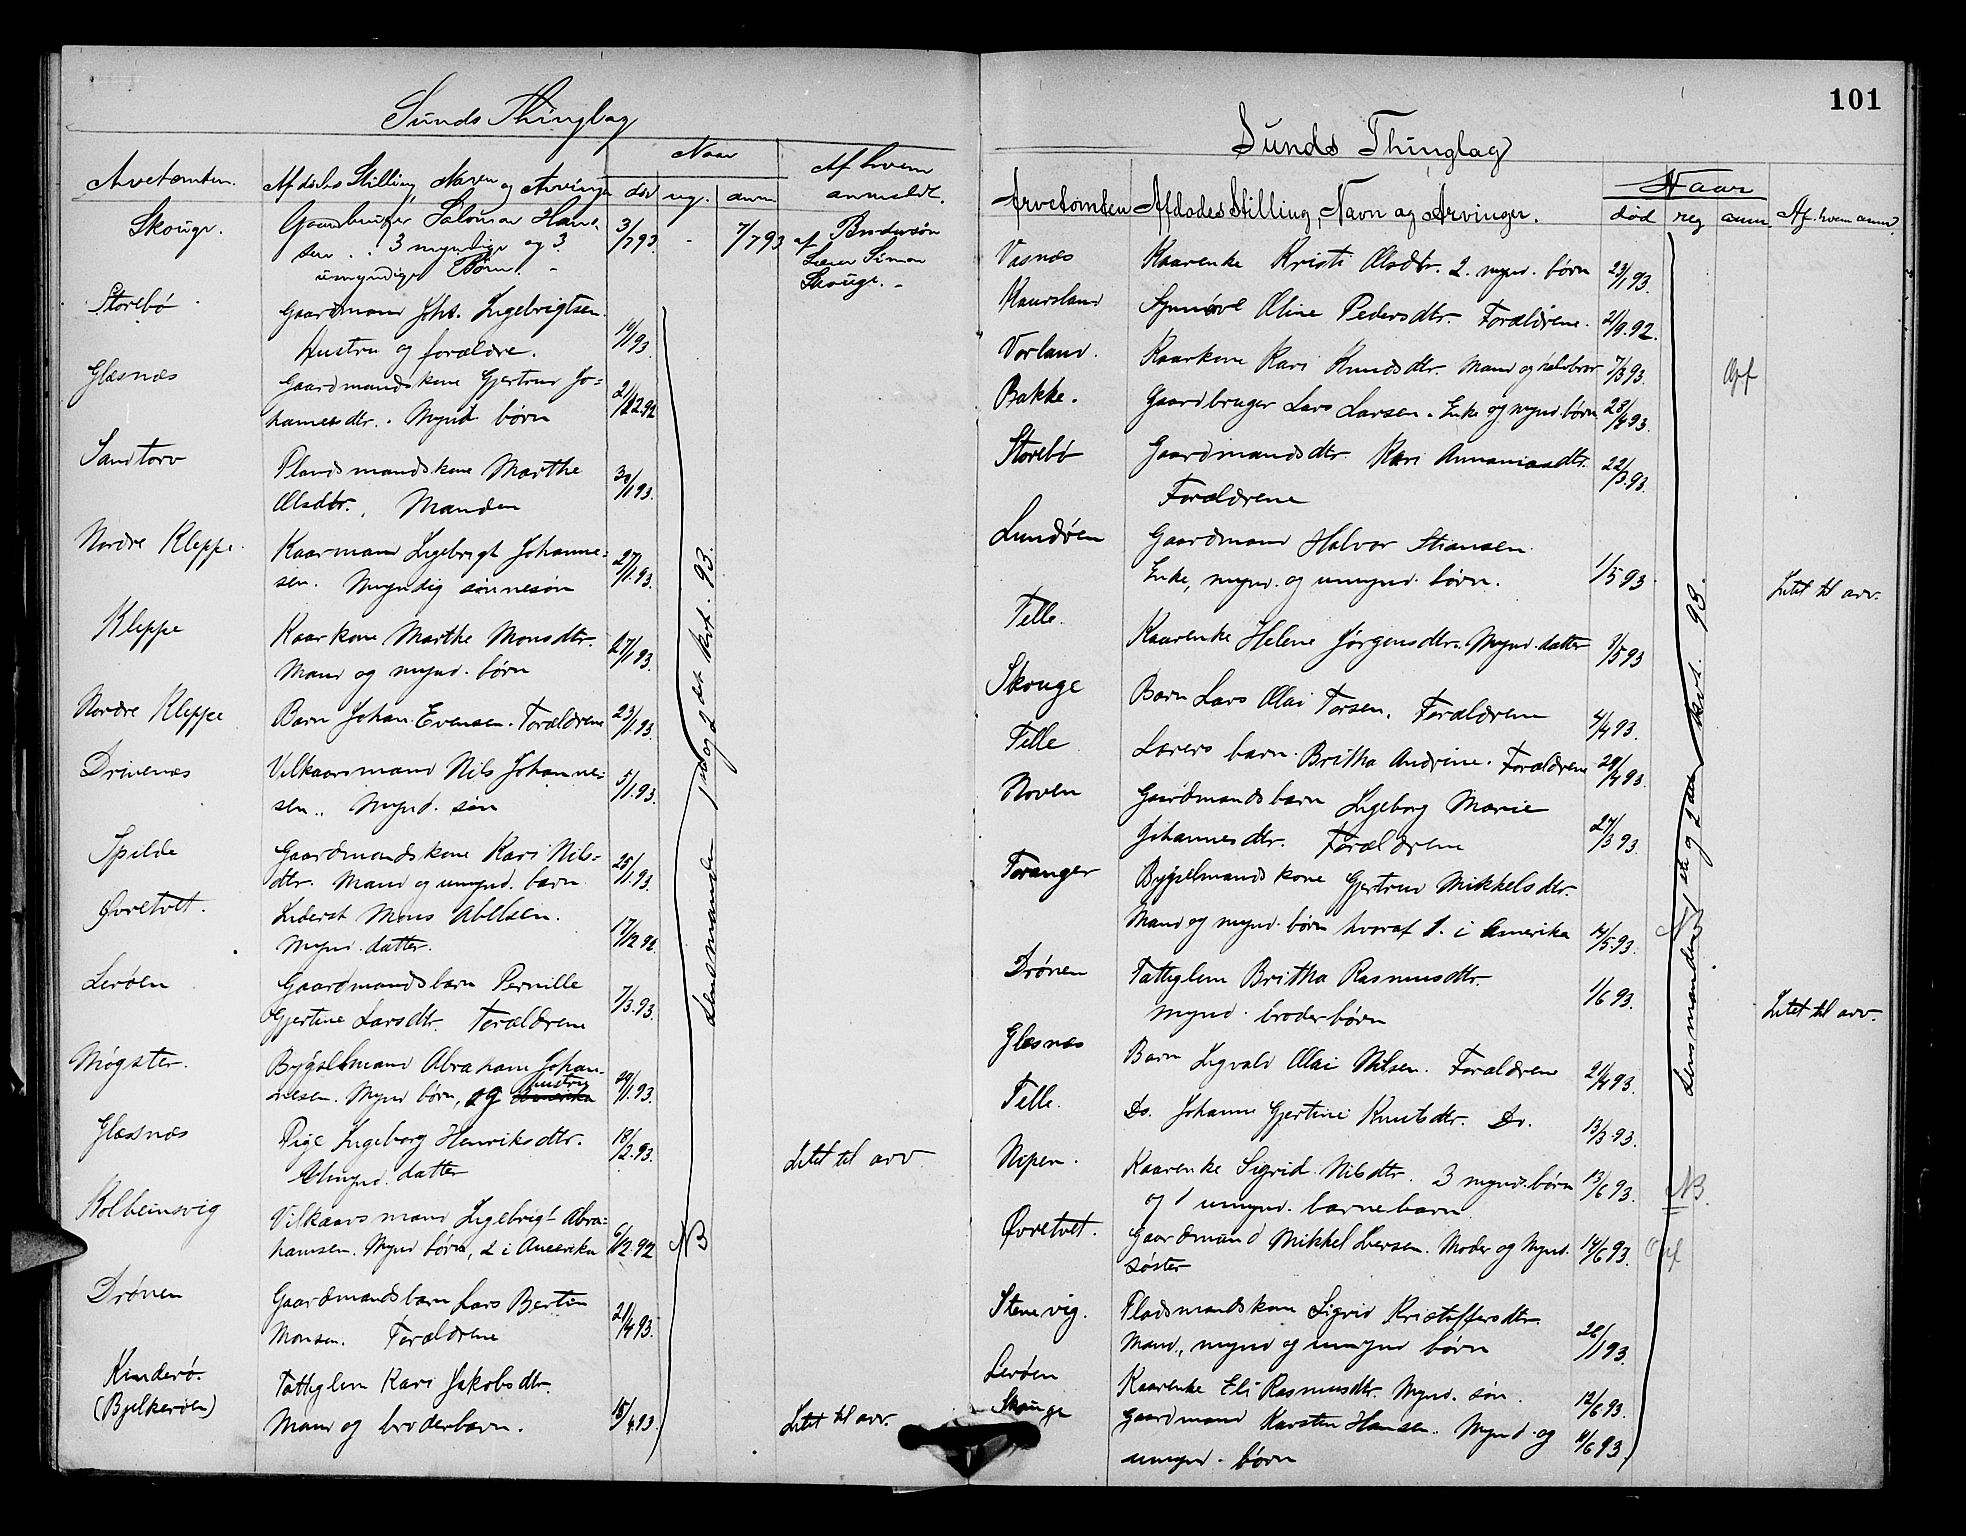 Sunds Thinglag
Arvetomten. Afdødes Stilling, Navn og Arvinger Naar Af hvem
død reg. anm anmeldt.
Skouge. Gaardbruger Salomon Han- 3/7 93 - 7/7 93 af Andersøn
sen . . 3 myndige og 3 Simon
umyndige Børn. - Skouge. -
Storebø Gaardmand Johs. Ingebrigtsen.
Hustru og forældre. 10/1 93.
Glæsnæs Gaardmandskone Gjertrud Jo=
hannesdtr. . Mynd børn 21/12 92
Sandtorv Pladsmandskone Marthe
Olsdtr. , Manden 30/1 93.
Nordre Kleppe. Kaarmand Ingebrigt Johanne=
sen. Myndig sønnesøn 27/1. 93.
Kleppe Kaarkone Marthe Monsdtr.
Mand og mynd. børn 27/1 93.
Nordre Kleppe Barn Johan Evensen. Forældrene 23/1. 93.
Drivenæs Vilkaarsmand Nils Johanne=
sen.. Mynd. søn 5/1. 93.
Spilde Gaardmandskone Kari Nils=
dtr. Mand og umynd. barn 25/1. 93.
Øvretvet. Inderst Mons Abelsen.
Mynd. datter. 17/12 92
Lerøen Gaardmandsbarn Pernille
Gjertine Larsdtr. Forældrene 7/3. 93.
Møgster. Bygselmand Abraham Johan-
nesen. Mynd børn, og hustru Amerika 29/1. 93.
Glæssnæs Pige Ingeborg Henriksdtr.
Umynd. datter 18/2. 93. Litet til arv
Kolbeinsvig Vilkaarsmand Ingebrigt Abra=
hamsen. Mynd børn, 2 i Amerika 6/12. 92
Drønen Gaardmandsbarn Lars Bertin
Monsen. Forældrene 21/4 93.
Kinderø. Fattiglem Kari Jakobsdtr.
(Bjelkerøen) Mand og broderbarn. 15/4. 93. Litet til arv.
NB Lensmanden 1ste og 2det kvt. 93.
101
Sunds Thinglag
Arvetomten Afdødes Stilling, Navn og Arvinger. Naar
død reg anm. Af hvem anm?
Vasnæs Kaarenke Kristi Olsdtr. 2. mynd. børn 23/1 93.
Haursland Synnøve Oline Pedersdtr. Forældrene. 21/9. 92.
Vorland. Kaarkone Kari Knudsdtr. Mand og halvbror 7/3 93. Opf
Bakke. Gaardbruger Lars Larsen. Enke og mynd. børn 28/4 93.
Storebø Gaardmandsdtr. Kari Annaniasdtr. 22/3. 93.
Forældrene
Lundøen Gaardmand Halvor Hansen.
Enke, mynd. og umynd. børn. 1/5 93. Litet til arv.
Telle. Kaarenke Helene Jørgensdtr. Mynd. datter 3/5 93
Skouge Barn Lars Olai Torsen. Forældrene 4/4 93.
Telle Lærers barn. Britha Andrine. Forældrene 29/4 93.
Noven Gaardmandsbarn Ingeborg Marie
Johannesdtr. Forældrene 27/3 93.
Toranger Bygselmandskone Gjertrud Mikkelsdtr.
Mand og mynd. børn hvoraf 1. i Amerika 14/5. 93.
Drønen Fattiglem Britha Rasmusdtr.
mynd. broderbørn 1/6 93. Litet til arv.
Glæsnæs Barn Sigvald Olai Nilsen. Forældrene 21/4 93.
Telle. Do. Johanne Gjertine Knutsdtr. Do. 13/3. 93.
Nipen. Kaarenke Sigrid Nilsdtr. 3 mynd. børn 13/6 93. NB.
og 1 umynd. barnebarn
Øvretvet. Gaardmand Mikkel Iversen. Moder og Mynd. 14/6 93. Opf
søster
Stenevig. Pladsmandskone Sigrid Kristoffersdtr.
Mand, mynd og umynd børn 26/1 93.
Lerøen Kaarenke Eli Rasmusdtr. Mynd. søn. 12/6 93.
Skouge Gaardmand Karsten Hansen. Mynd. og 11/6 93.
umynd. børn
Lensmanden 1ste og 2det kvt. 93.